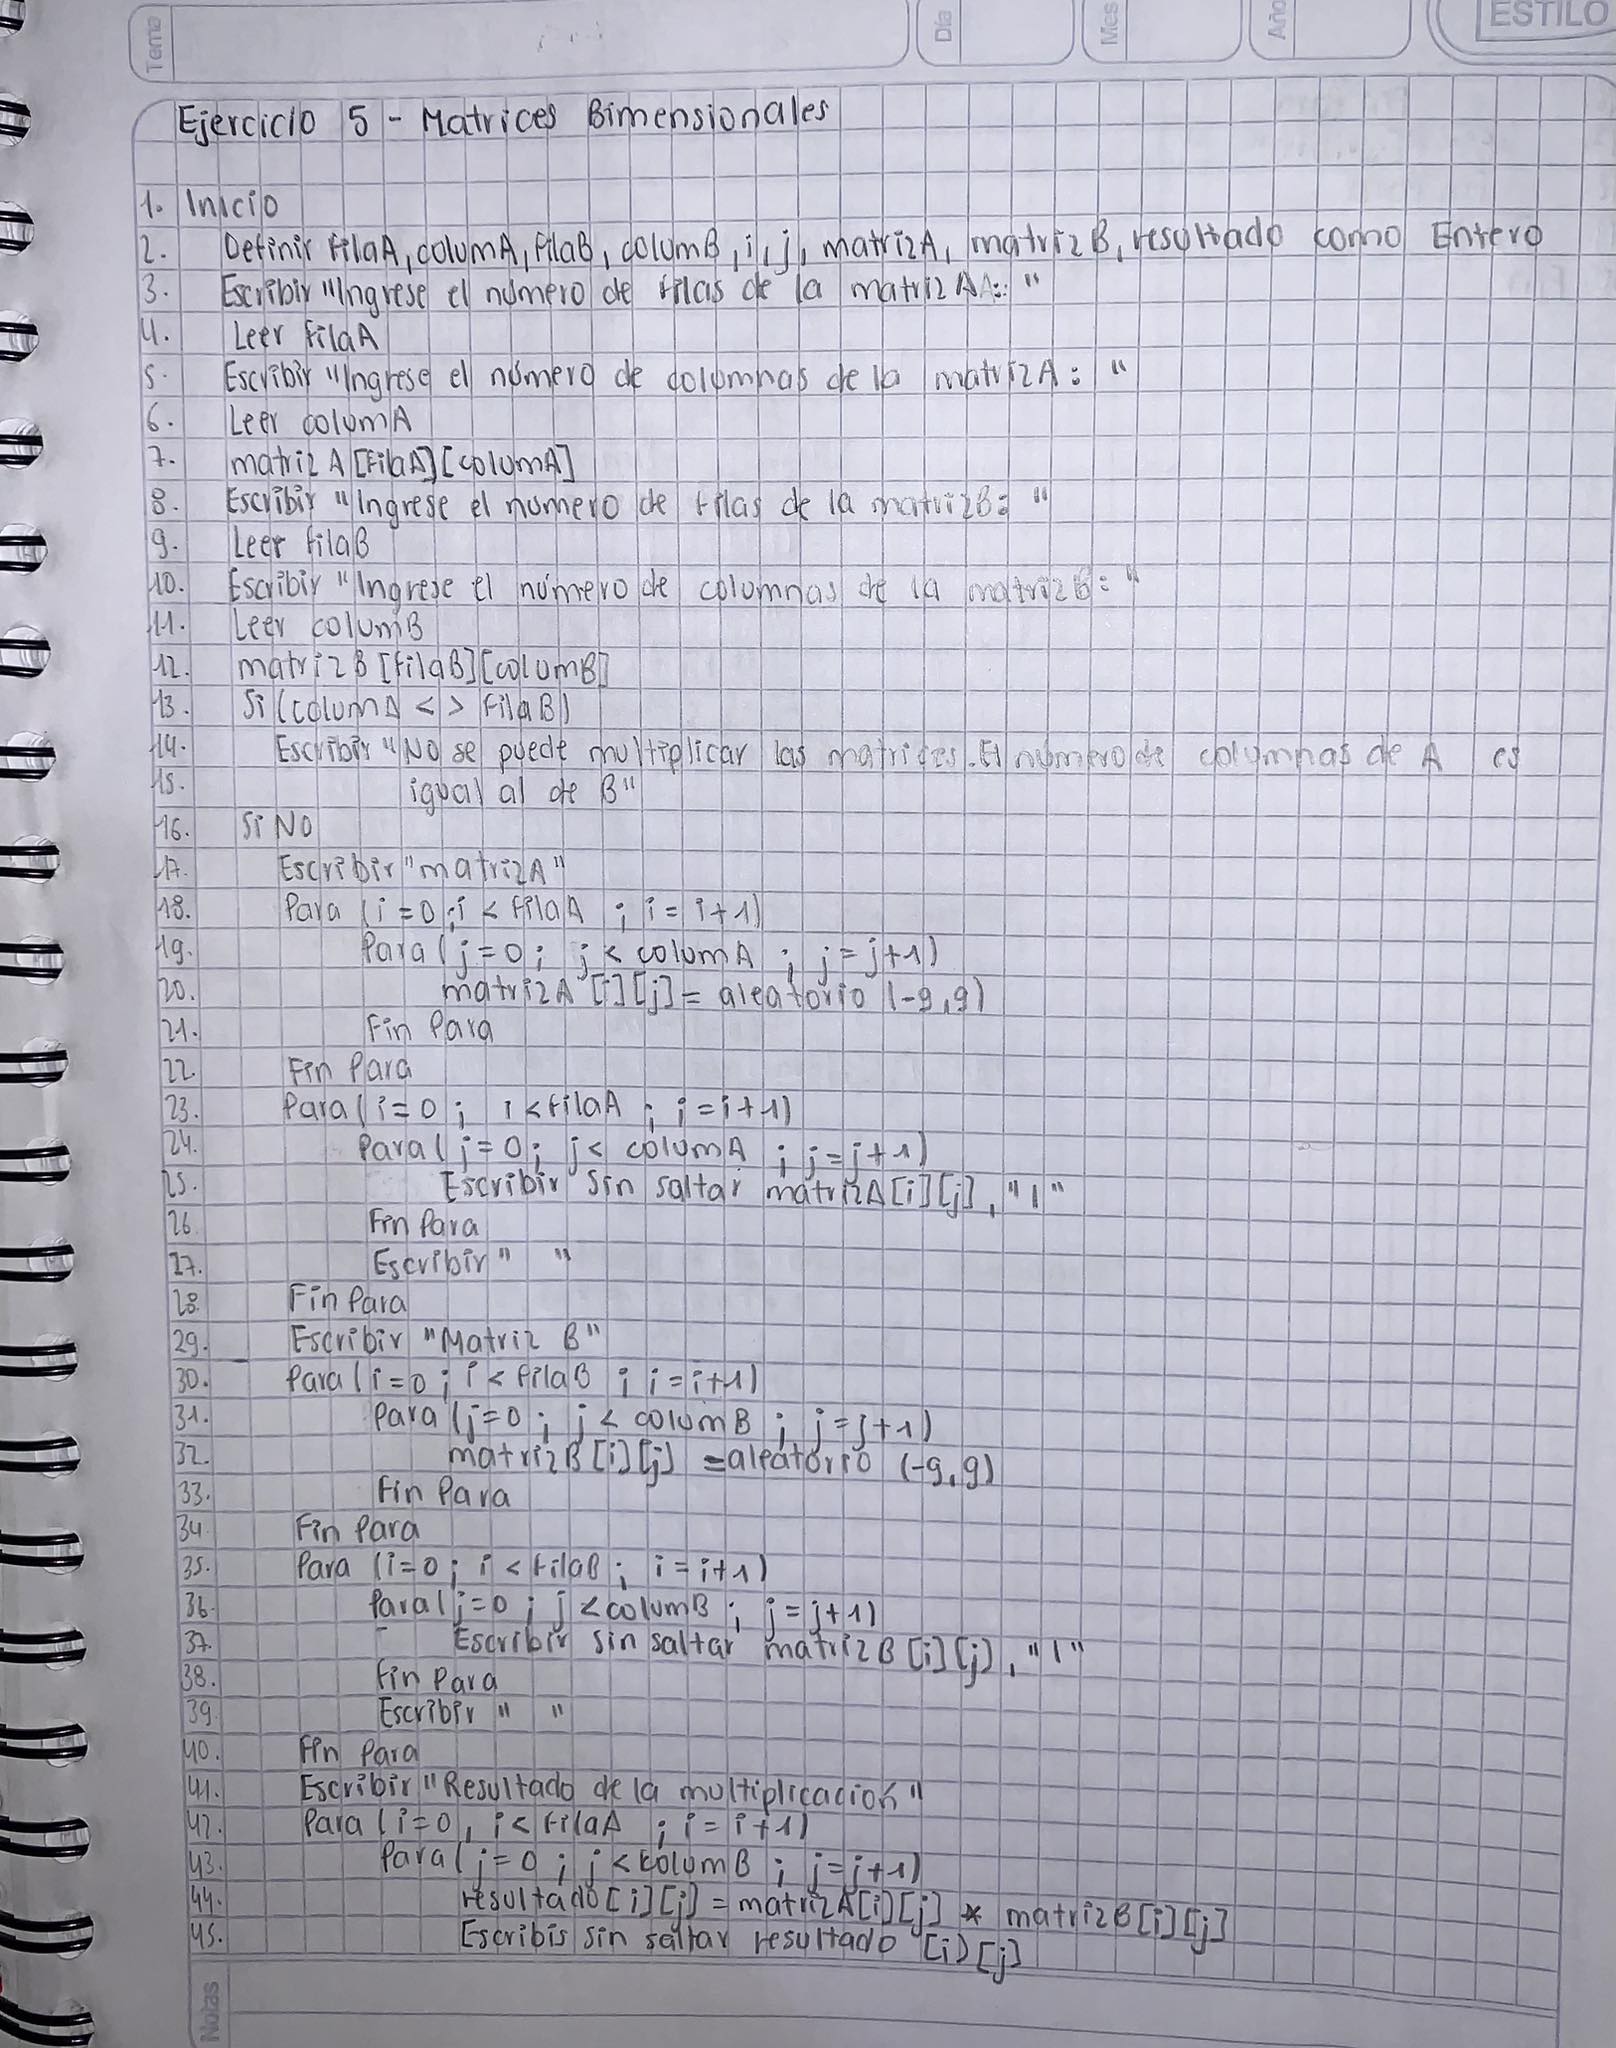 Tema
Día
Mes
Año
ESTILO
Ejercicio 5 - Matrices Bimensionales
1. Inicio
2. Definir filaA, columA, filaB, columB, i, j, matrizA, matrizB, resultado como Entero
3. Escribir "Ingrese el número de filas de la matriz A: "
4. Leer filaA
5. Escribir "Ingrese el número de columnas de la matrizA: "
6. Leer columA
7. matriz A [filaA][columA]
8. Escribir "Ingrese el numero de filas de la matrizB: "
9. Leer filaB
10. Escribir "Ingrese el número de columnas de la matrizB: "
11. Leer columB
12. matriz B [filaB][columB]
13. Si (columA < > filaB)
14. Escribir "No se puede multiplicar las matrices. El número de columnas de A es
15. igual al de B"
16. Si NO
17. Escribir "matrizA"
18. Para (i=0; i < filaA ; i=i+1)
19. Para (j=0; j < columA ; j=j+1)
20. matrizA [i][j] = aleatorio (-9,9)
21. Fin Para
22. Fin Para
23. Para (i=0; i < filaA ; i=i+1)
24. Para (j=0; j < columA ; j=j+1)
25. Escribir Sin saltar matrizA[i][j], "|"
26. Fin Para
27. Escribir " "
28. Fin Para
29. Escribir "Matriz B"
30. Para (i=0; i < filaB ; i=i+1)
31. Para (j=0; j < columB ; j=j+1)
32. matrizB [i][j] = aleatorio (-9,9)
33. Fin Para
34. Fin Para
35. Para (i=0; i < filaB; i=i+1)
36. Para (j=0; j < columB; j=j+1)
37. Escribir sin saltar matrizB[i][j], "|"
38. Fin Para
39. Escribir " "
40. Fin Para
41. Escribir "Resultado de la multiplicación"
42. Para (i=0, i < filaA ; i=i+1)
43. Para (j=0; j < columB ; j=j+1)
44. resultado[i][j] = matrizA[i][j] * matrizB[i][j]
45. Escribis sin saltar resultado [i][j]
Notas